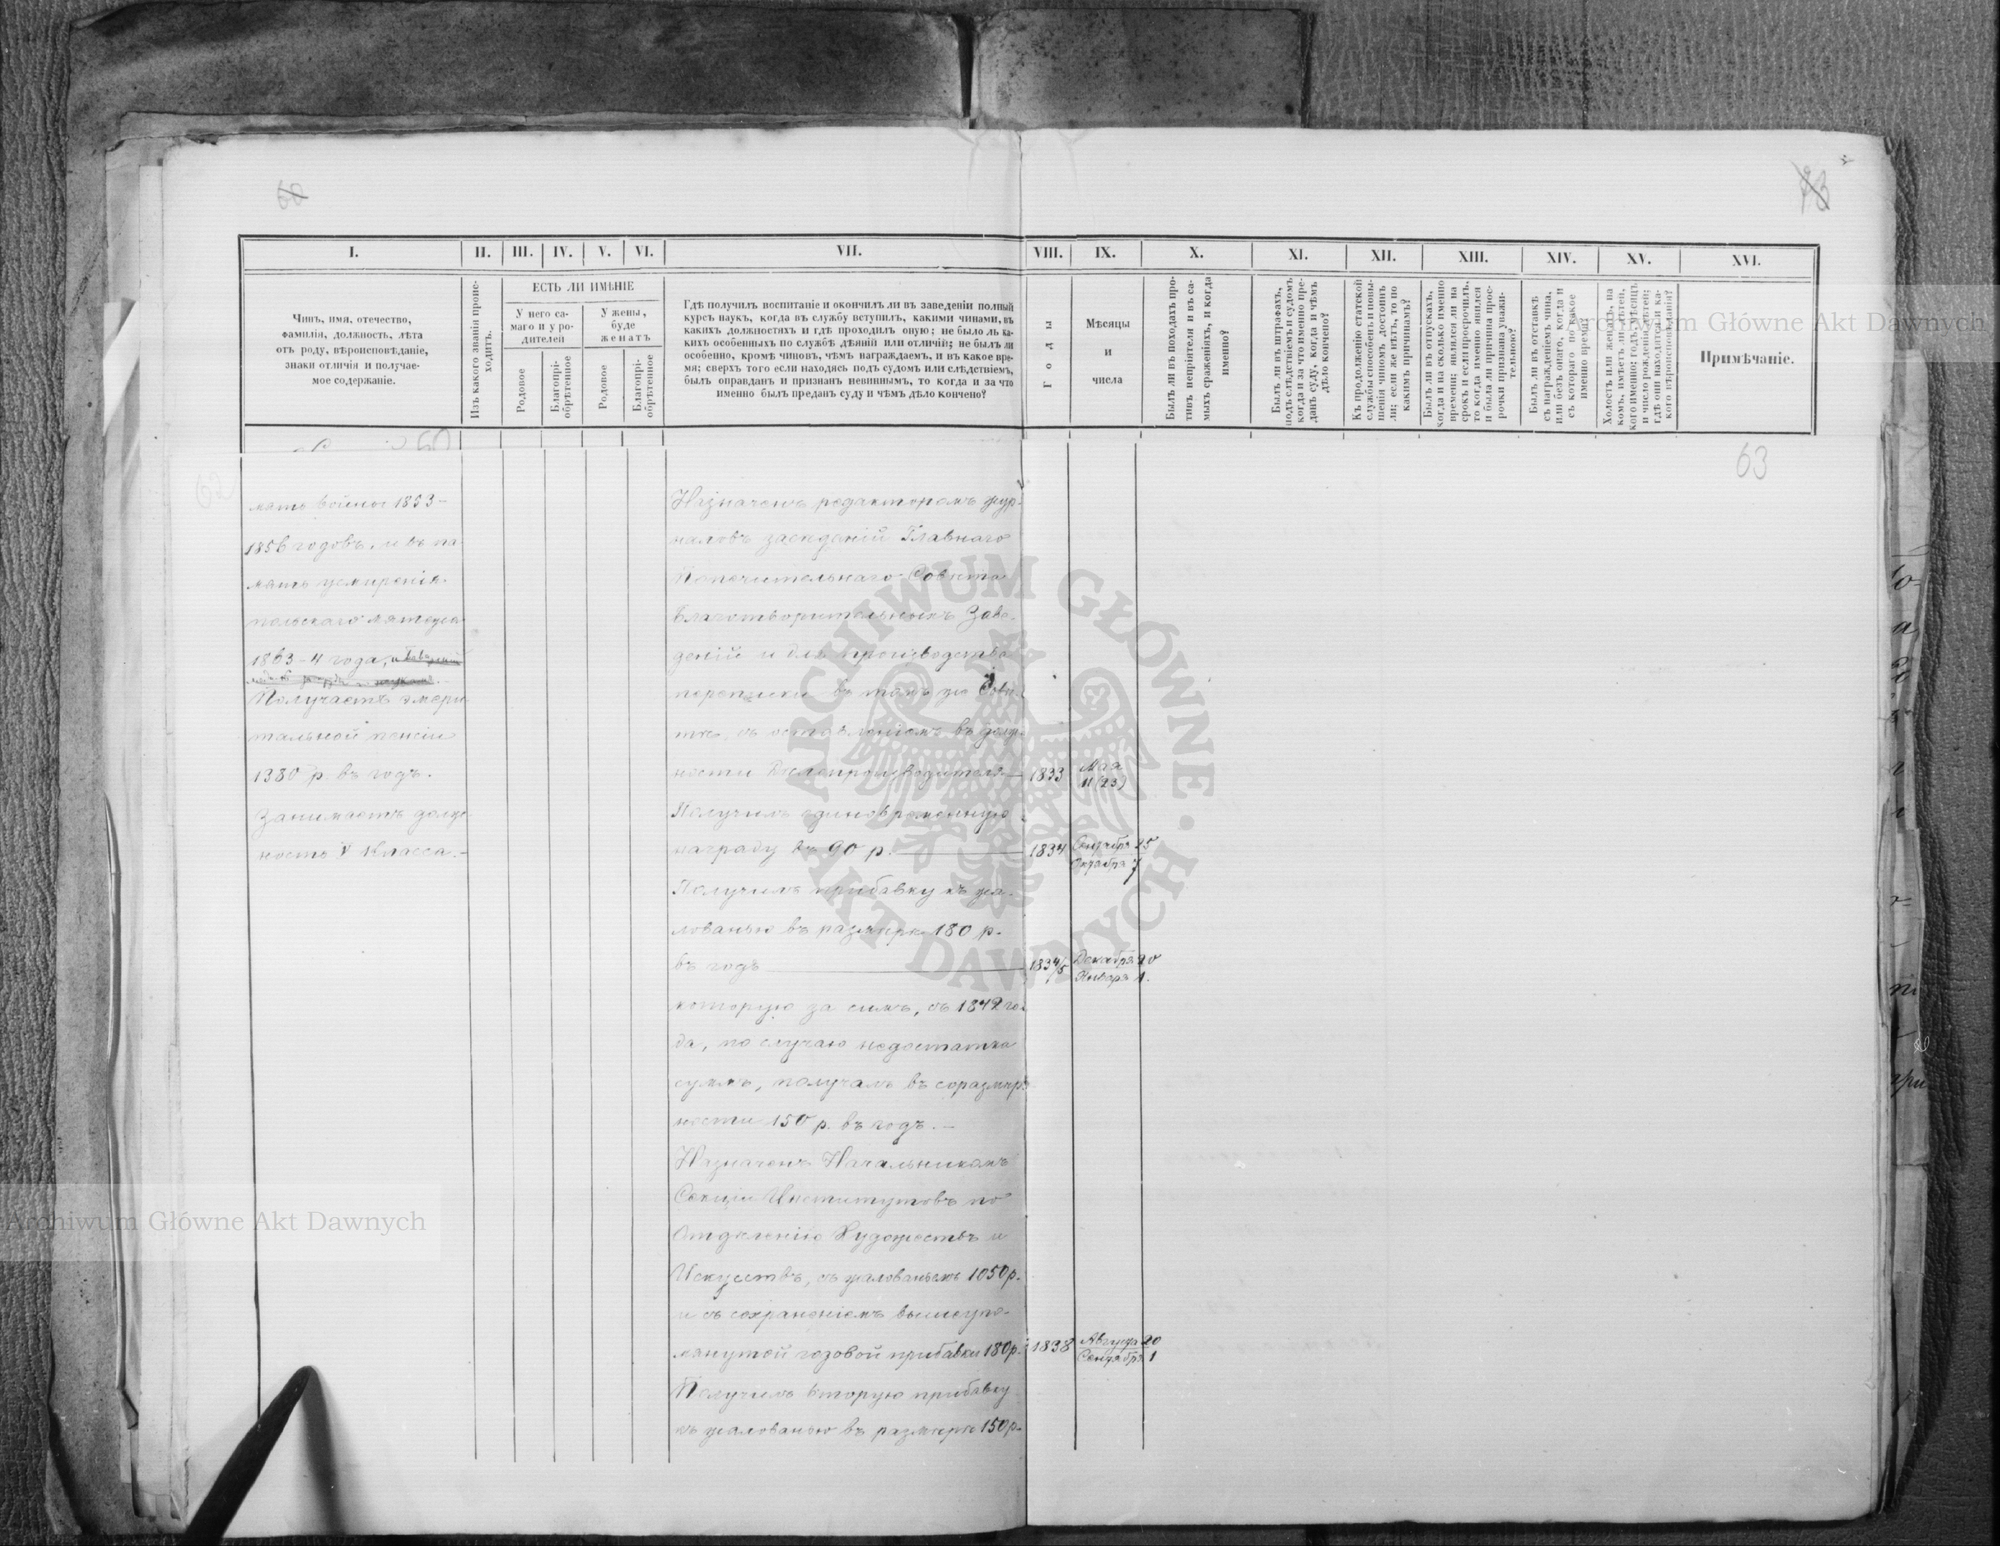 60
73
I.
II.
III.
IV.
V.
VI.
VII.
VIII.
IX.
X.
XI.
XII.
XIII.
XIV.
XV.
XVI.
Чинъ, имя, отечество,
фамилія, должность, лѣта
отъ роду, вѣроисповѣданіе,
знаки отличія и получае-
мое содержаніе.
Изъ какого званія проис-
ходитъ.
ЕСТЬ ЛИ ИМѢНІЕ
У него са-
маго и у ро-
дителей
У жены,
буде
женатъ
Родовое
Благопрі-
обрѣтенное
Родовое
Благопрі-
обрѣтенное
Гдѣ получилъ воспитаніе и окончилъ ли въ заведеніи полный
курсъ наукъ, когда въ службу вступилъ, какими чинами, въ
какихъ должностяхъ и гдѣ проходилъ оную; не было ль ка-
кихъ особенныхъ по службѣ дѣяній или отличій; не былъ ли
особенно, кромѣ чиновъ, чѣмъ награждаемъ, и въ какое вре-
мя; сверхъ того если находясь подъ судомъ или слѣдствіемъ,
былъ оправданъ и признанъ невиннымъ, то когда и за что
именно былъ преданъ суду и чѣмъ дѣло кончено?
Годы
Мѣсяцы
и
числа
Былъ ли въ походахъ про-
тивъ непріятеля и въ са-
мыхъ сраженіяхъ, и когда
именно?
Былъ ли въ штрафахъ,
подъ слѣдствіемъ и судомъ,
когда и за что именно пре-
данъ суду, когда и чѣмъ
дѣло кончено?
Къ продолженію статской
службы способенъ и повы-
шенія чиномъ достоинъ
ли; если же нѣтъ, то по
какимъ причинамъ?
Былъ ли въ отпускахъ,
когда и на сколько именно
времени; являлся ли на
срокъ и если просрочилъ,
то когда именно явился
и была ли причина прос-
рочки признана уважи-
тельною?
Былъ ли въ отставкѣ
съ награжденіемъ чина,
или безъ онаго, когда и
съ котораго по какое
именно время?
Холостъ или женатъ, на
комъ, имѣетъ ли дѣтей,
кого именно; годъ, мѣсяцъ
и число рожденія дѣтей;
гдѣ они находятся и ка-
кого вѣроисповѣданія?
Примѣчаніе.
Archiwum Główne Akt Dawnych
60
62
63
мять войны 1853-
1856 годовъ, и въ па-
мять усмиренія
польскаго мятежа
1863-4 года,
Получаетъ эмери
тальной пенсіи
1380 р въ годъ.
Занимаетъ долж
ность V класса.-
Назначенъ редакторомъ жур-
наловъ засѣданій Главнаго
Попечительнаго Совѣта
Благотворительныхъ Заве-
деній и для производства
переписки въ томъ же Совѣ-
тѣ, съ оставленіемъ въ долж-
ности Дѣлопроизводителя — 1833 Мая 11 (23)
Получилъ единовременную
награду въ 90 р. — 1834 Сентября 25 Октября 7
Получилъ прибавку къ жа-
лованью въ размѣрѣ 180 р.
въ годъ — 1834/5 Декабря 20 Января 1.
которую за симъ, съ 1842 го-
да, по случаю недостатка
суммъ, получалъ въ соразмѣр-
ности 150 р. въ годъ. —
Назначенъ Начальникомъ
Секціи Институтовъ по
Отдѣленію Художествъ и
Искуствъ, съ жалованьемъ 1050 р.
и съ сохраненіемъ вышеупо-
мянутой годовой прибавки 180 р. 1838 Августа 20 Сентября 1
Получилъ вторую прибавку
къ жалованью въ размѣрѣ 150 р.
ARCHIWUM GŁÓWNE AKT DAWNYCH
Archiwum Główne Akt Dawnych